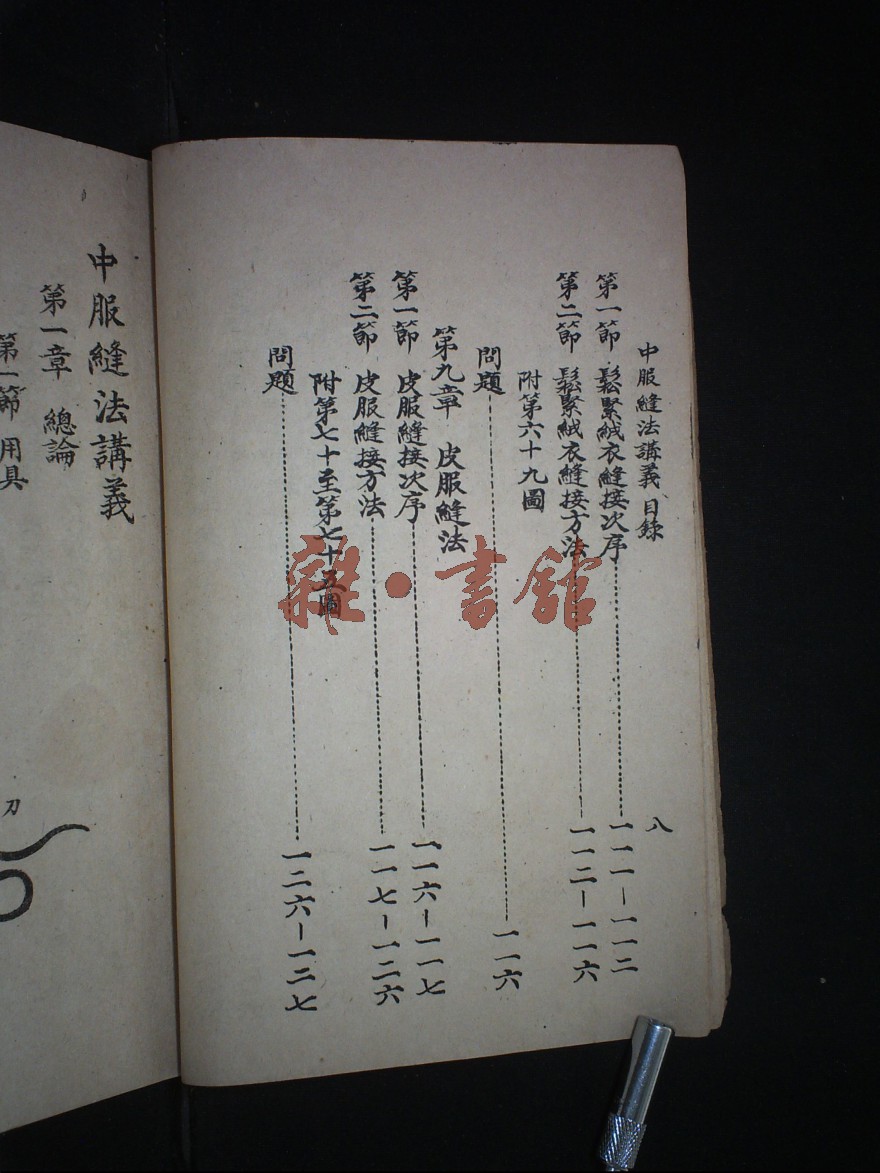 中服縫法講義 目錄 八
第一節 鬆緊絨衣縫接次序 一一一－一一二
第二節 鬆緊絨衣縫接方法 一一二－一一六
附第六十九圖
問題 一一六
第九章 皮服縫法
第一節 皮服縫接次序 一一六－一一七
第二節 皮服縫接方法 一一七－一二六
附第七十至第七十五圖
問題 一二六－一二七
中服縫法講義
第一章 總論
第一節 用具
刀
雜·書館